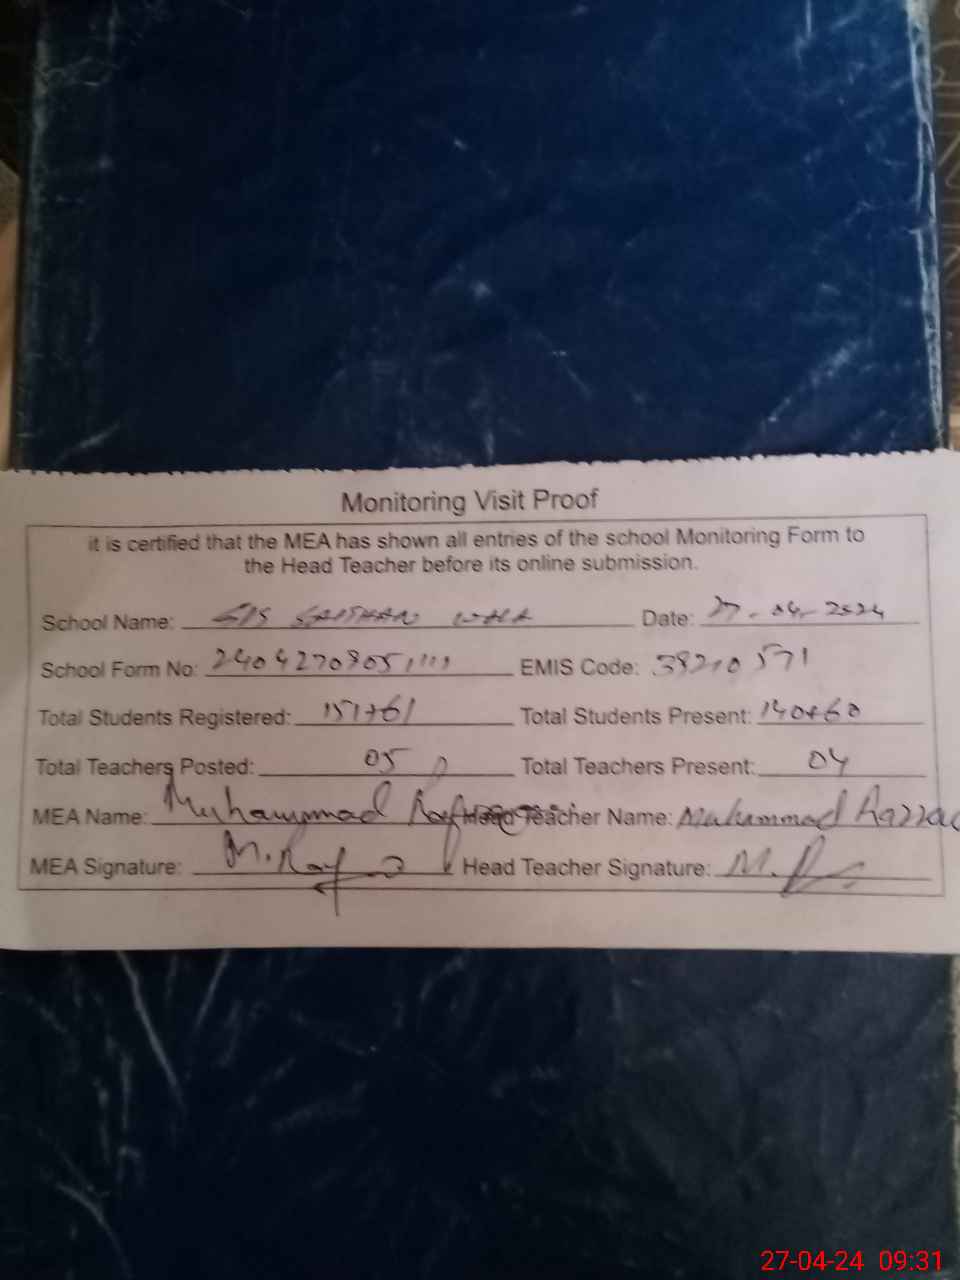 Monitoring Visit Proof
it is certified that the MEA has shown all entries of the school Monitoring Form to
the Head Teacher before its online submission.
School Name: Date: 27-04-2024
School Form No: EMIS Code: 38210571
Total Students Registered: 151+61 Total Students Present: 140+60
Total Teachers Posted: 05 Total Teachers Present: 04
MEA Name: Muhammad Head Teacher Name: Muhammad
MEA Signature: Head Teacher Signature:
27-04-24 09:31